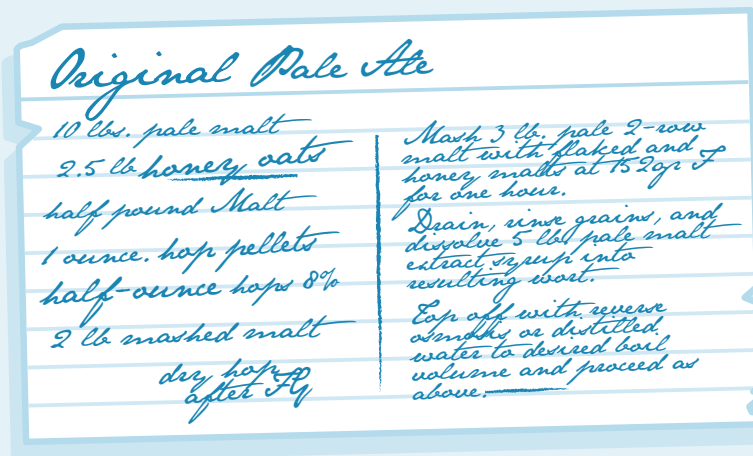 Original Pale Ale
10 lbs. pale malt
2.5 lb honey oats
half pound Malt
1 ounce. hop pellets
half-ounce hops 8%
2 lb mashed malt
dry hop
after
Mash 3 lb. pale 2-row
malt with flaked and
honey malts at 152gr F
for one hour.
Drain, rinse grains, and
dissolve 5 lb. pale malt
extract syrup into
resulting wort.
Top off with reverse
osmosis or distilled.
water to desired boil
volume and proceed as
above.